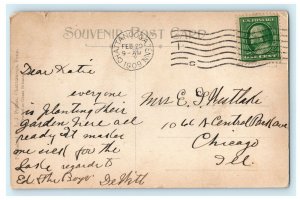 SOUVENIR POST CARD
CHATTANOOGA, TENN.
FEB 20
9 - AM
C
Dear Katie
everyone
is planting their
garden here all
ready It makes
me sick for the
Lake regards to
Ed & The Boys DeWitt
Mrs E. S. Westlake
1066 A Central Park ave
Chicago
Ill.